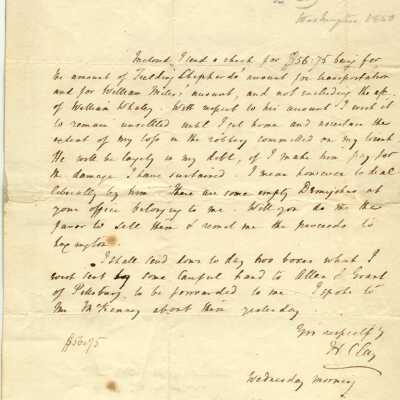 Washington 1850
Inclosed, I send a check for $56:75 being for
the amount of Fielding Shepherds' amount for transportation
and for William Miles' amount, and not including the
of William Whaley. With respect to his amount I wish it
to remain unsettled until I get home and ascertain the
extent of my loss in the robbery committed on my trunk
He will be largely in my debt, if I make him pay for
the damage I have sustained. I mean however to deal
liberally by him. There are some empty Demijohns at
your office belonging to me. Will you do me the
favor to sell them & remit me the proceeds to
Lexington.
I shall send down to day two boxes which I
wish sent by some careful hand to Allen & Grant
of Pittsburg, to be forwarded to me. I spoke to
Mr McKenney about them yesterday.
Yrs respectfy
H Clay
$56:75
Wednesday morning